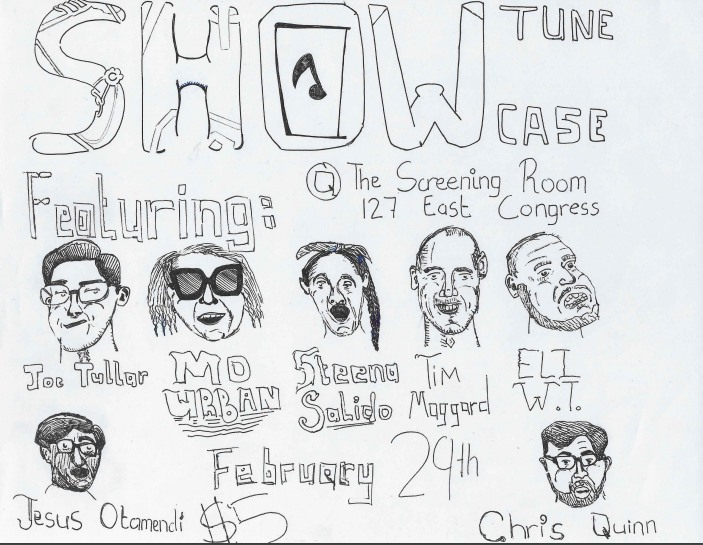 SHOW TUNE
CASE
@ The Screening Room
127 East Congress
Featuring:
Joe Tullar
MO
URBAN
Steena
Salido
Tim
Maggard
ELI
W.T.
February 29th
Jesus Otamendi
$5
Chris Quinn